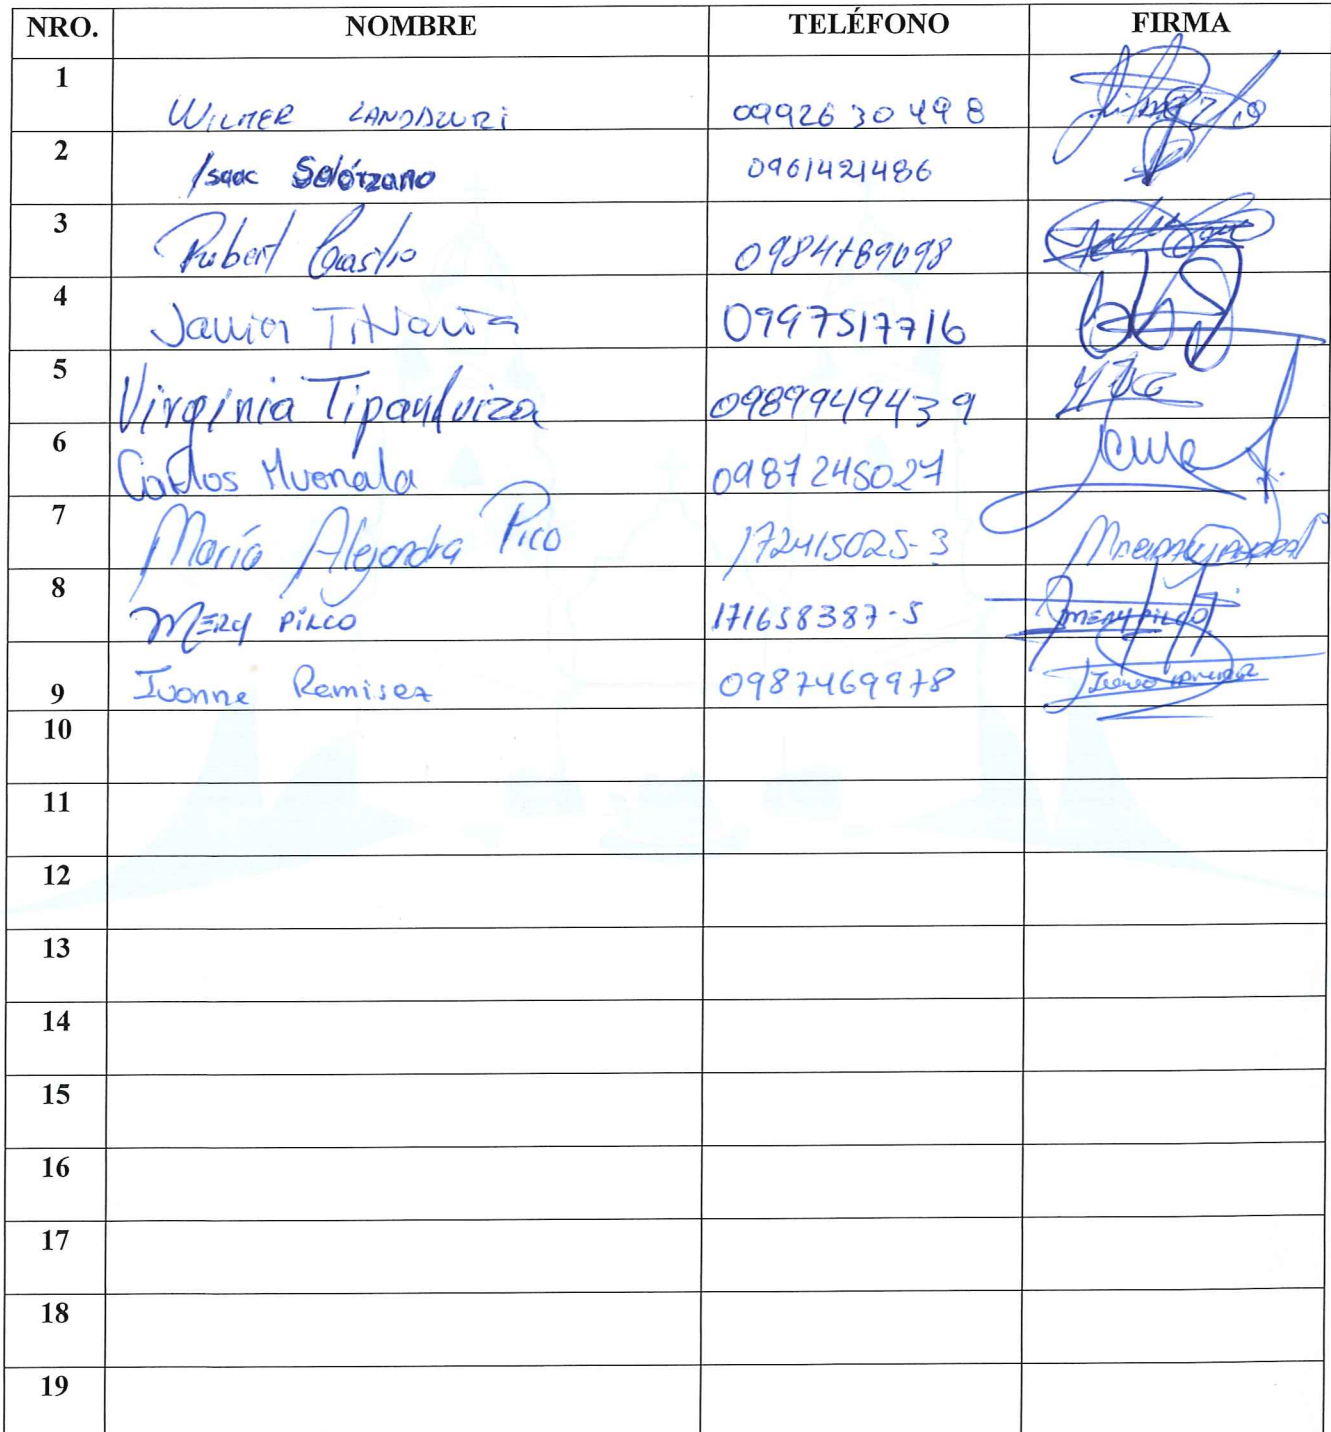 NRO. NOMBRE TELÉFONO FIRMA
1 WILMER LANDAZURI 0992630498
2 Isaac Solórzano 0961421486
3 Robert Castio 0984789098
4 Javier 0997517716
5 Virginia Tipanluiza 0989949439
6 Carlos Muenala 0987245027
7 María Alejandra Pico 172415025-3
8 MERY PILCO 171658387-5 MERY PILCO
9 Ivonne Remisez 0987469978
10
11
12
13
14
15
16
17
18
19